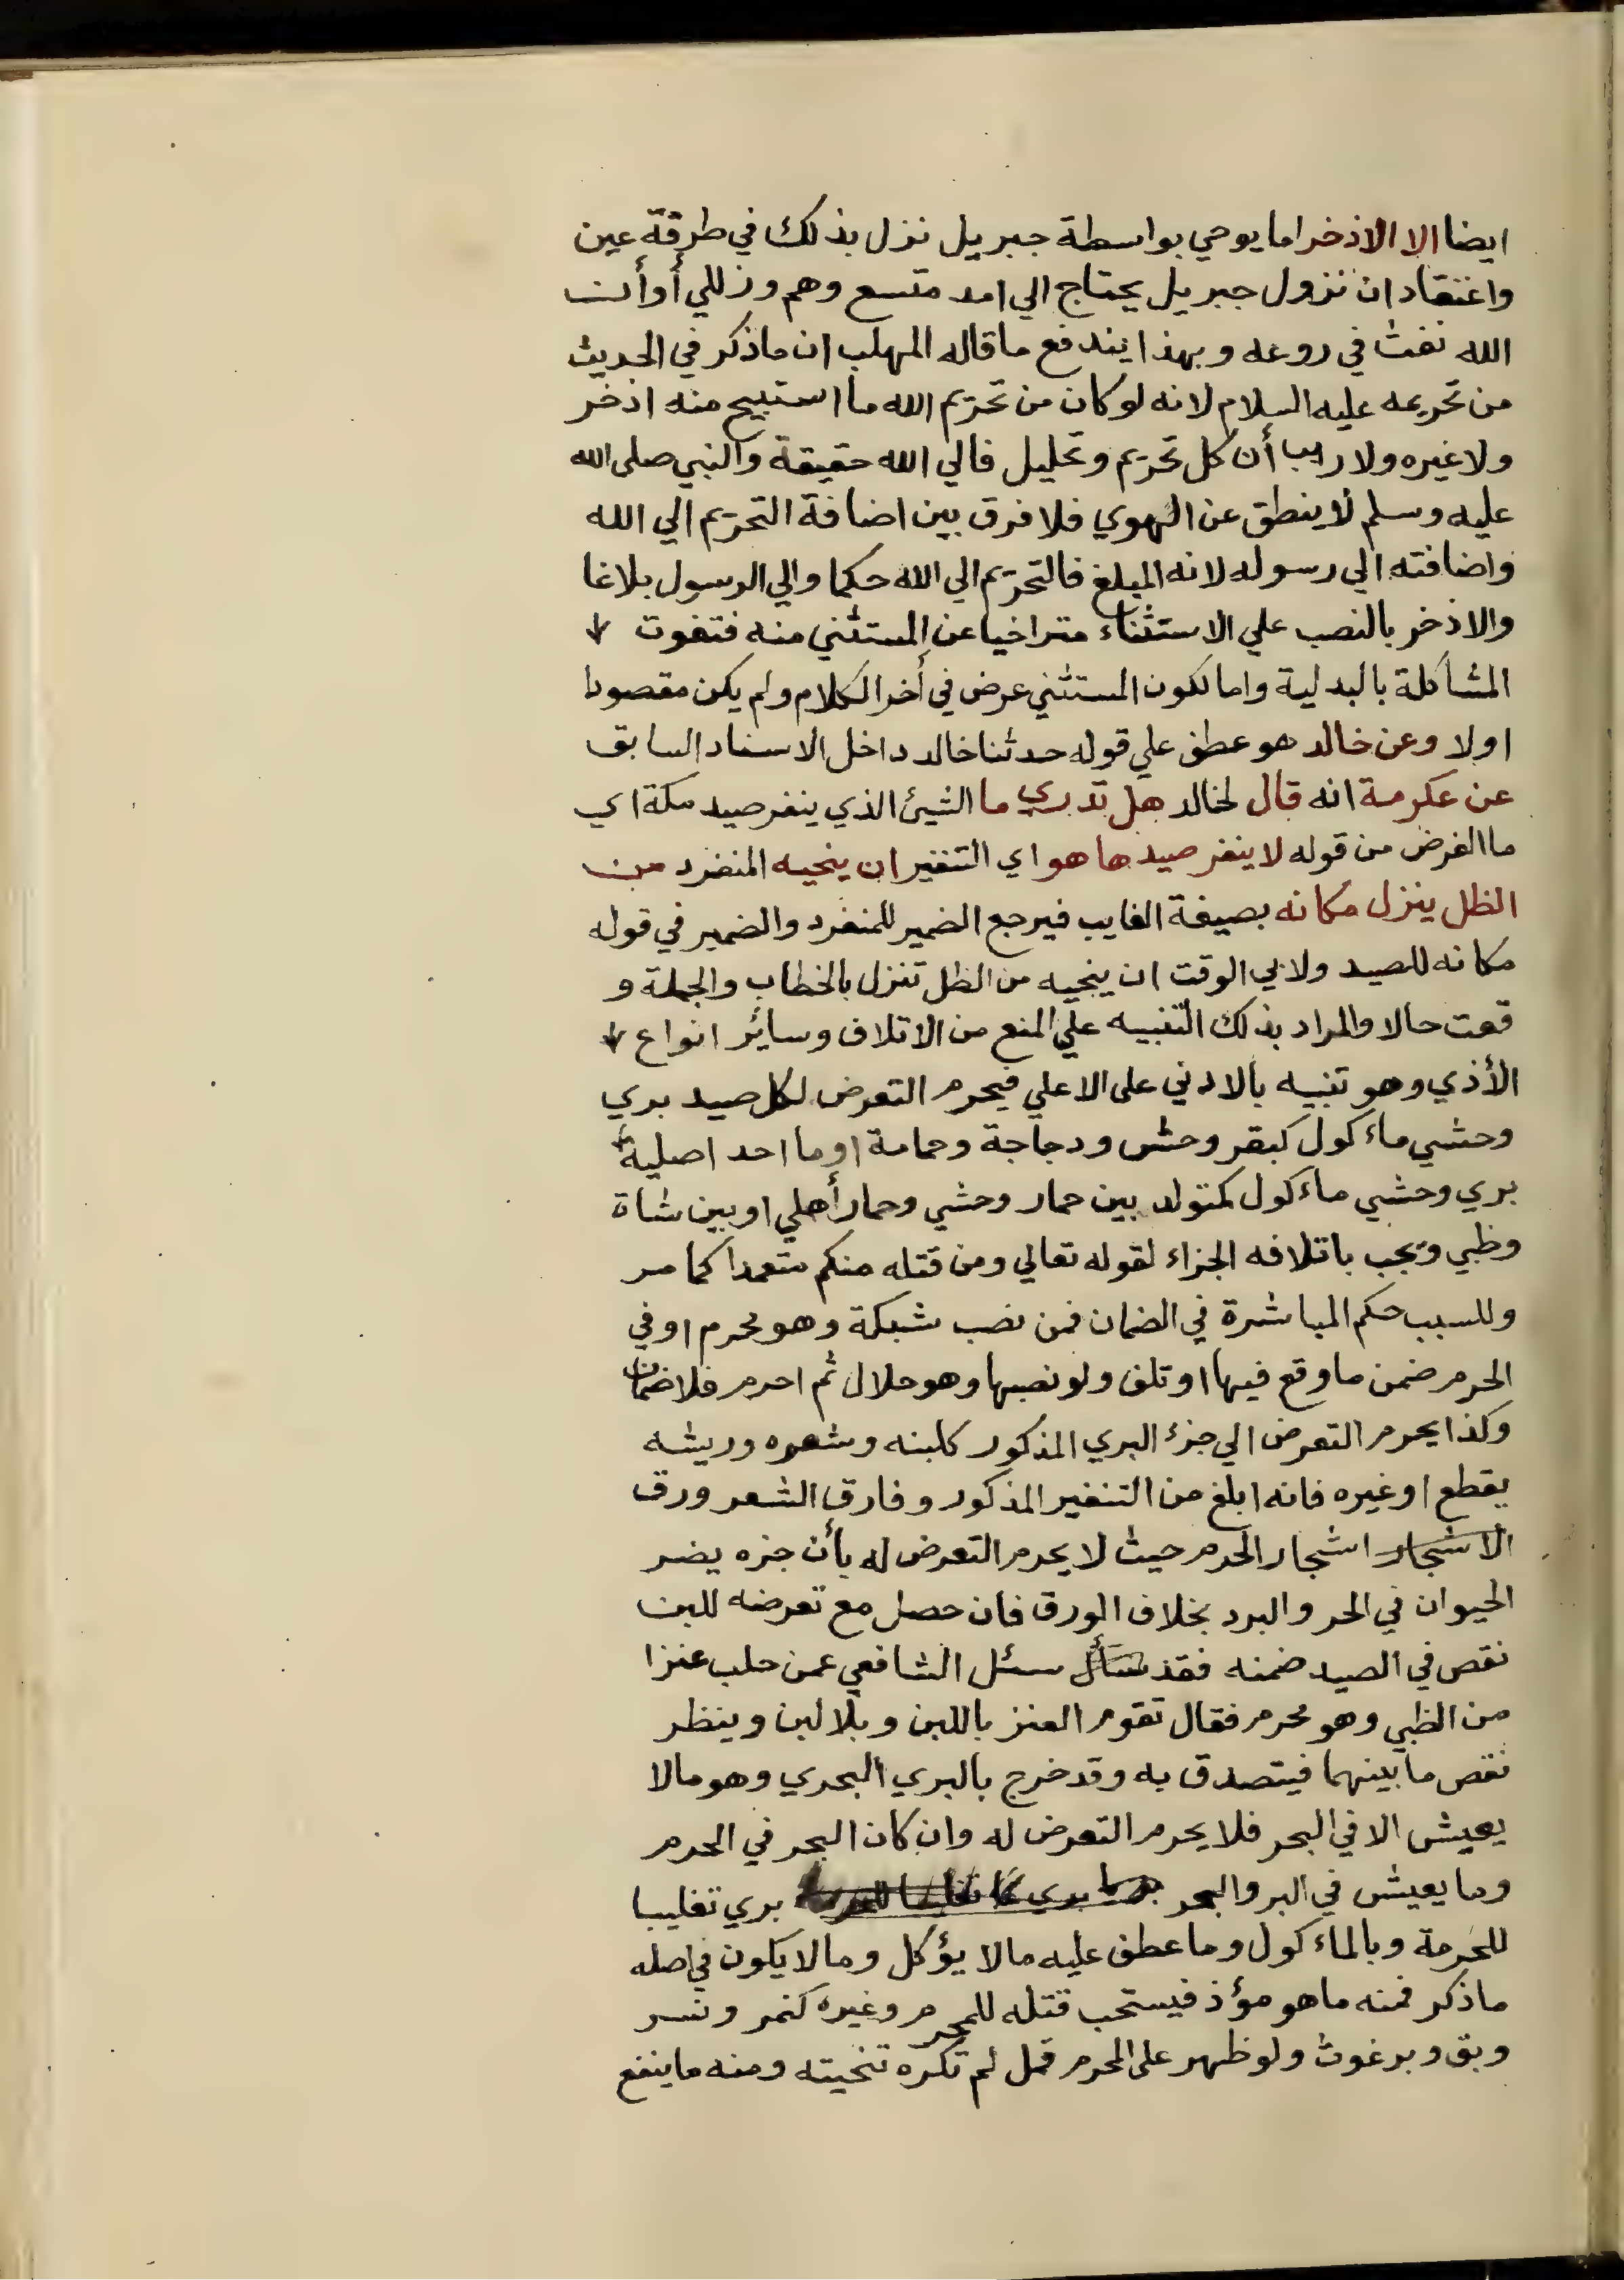 ايضا الا الاذخر اما يوحي بواسطة جبريل نزل بذلك في طرفة عين
واعتقاد ان نزول جبريل يحتاج الي امد متسع وهم وزللي أو أن
الله نفث في روعه وبهذا يندفع ما قاله المهلب ان ما ذكر في الحديث
من تحريمه عليه السلام لانه لو كان من تحريم الله ما استبيح منه اذخر
ولا غيره ولا ريب أن كل تحريم وتحليل فالي الله حقيقة والنبي صلى الله
عليه وسلم لا ينطق عن الهوي فلا فرق بين اضافة التحريم الي الله
واضافته الي رسوله لانه المبلغ فالتحريم الي الله حكما والي الرسول بلاغا
والاذخر بالنصب علي الاستثناء متراخيا عن المستثني منه فتفوت
المشاكلة بالبدلية واما لكون المستثني عرض في أخر الكلام ولم يكن مقصودا
اولا وعن خالد هو عطف علي قوله حدثنا خالد داخل الاسناد السابق
عن عكرمة انه قال لخالد هل تدري ما الشيئ الذي ينفر صيد مكة اي
ما الغرض من قوله لا ينفر صيدها هو اي التنفير ان ينحيه المنفرد من
الظل ينزل مكانه بصيغة الغايب فيرجع الضمير للمنفرد والضمير في قوله
مكانه للصيد ولابي الوقت ان ينحيه من الظل تنزل بالخطاب والجملة و
قعت حالا والمراد بذلك التنبيه علي المنع من الاتلاف وسائر انواع
الأذي وهو تنبيه بالادني على الاعلي فيحرم التعرض لكل صيد بري
وحشي ماءكول كبقر وحش ودجاجة وحمامة او ما احد اصلية
بري وحشي ماءكول كمتولد بين حمار وحشي وحمار أهلي او بين شاة
وظبي ويجب باتلافه الجزاء لقوله تعالي ومن قتله منكم متعمدا كما مر
وللسبب حكم المباشرة في الضمان فمن نصب شبكة وهو محرم او في
الحرم ضمن ما وقع فيها او تلف ولو نصبها وهو حلال ثم احرم فلا ضمان
وكذا يحرم التعرض الي جزء البري المذكور كلبنه وشعره وريشه
بقطع او غيره فانه ابلغ من التنفير المذكور وفارق الشعر ورق
الاشجار اشجار الحرم حيث لا يحرم التعرض له بأن جزه يضر
الحيوان في الحر والبرد بخلاف الورق فان حصل مع تعرضه للبن
نقص في الصيد ضمنه فقد سأل سئل الشافعي عمن حلب عنزا
من الظبي وهو محرم فقال تقوم العنز باللبن وبلا لبن وينظر
نقص ما بينهما فيتصدق به وقد خرج بالبري البحري وهو مالا
يعيش الا في البحر فلا يحرم التعرض له وان كان البحر في الحرم
وما يعيش في البر والبحر بري تغليبا
للحرمة وبالماءكول وما عطف عليه مالا يؤكل ومالا يكون في اصله
ما ذكر فمنه ما هو مؤذ فيستحب قتله للمحرم وغيره كنمر ونسر
وبق وبرغوث ولو ظهر على المحرم قمل لم تكره تنحيته ومنه ما ينفع